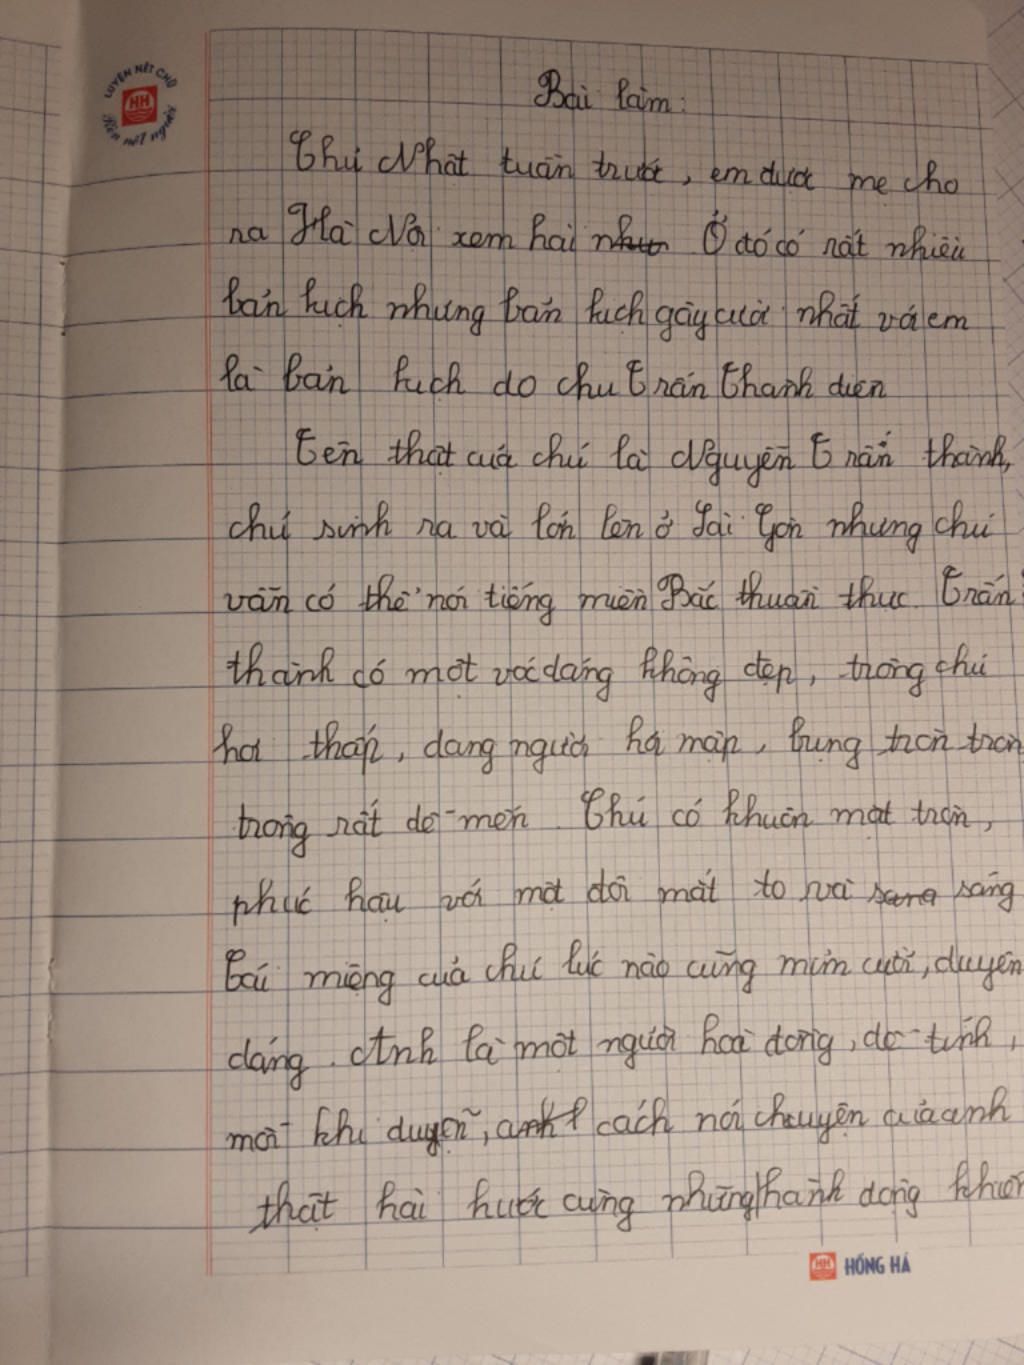 LUYỆN NÉT CHỮ
HH
Rèn nết người
Bài làm:
Chủ Nhật tuần trước, em được mẹ cho
ra Hà Nội xem hài như Ở đó có rất nhiều
bản kịch nhưng bản kịch gây cười nhất với em
là bản kịch do chú Trấn Thành diễn
Tên thật của chú là Nguyễn Trấn thành,
chú sinh ra và lớn lên ở Sài Gòn nhưng chú
vẫn có thể nói tiếng miền Bắc thuần thục. Trấn
thành có một vóc dáng không đẹp, trông chú
hơi thấp, dáng người hơi mập, bụng tròn tròn
trông rất dễ mến. Chú có khuôn mặt tròn,
phúc hậu với một đôi mắt to và sang sáng
Cái miệng của chú lúc nào cũng mỉm cười, duyên
dáng. Anh là một người hoà đồng, dễ tính,
mỗi khi duyễn, anh cách nói chuyện của anh
thật hài hước cùng những hành động khuôn
HH HỒNG HÀ